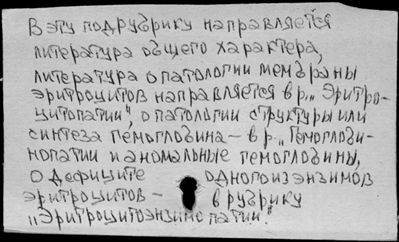 В эту подрубрику направляется
литература общего характера,
литература о патологии мембраны
эритроцитов направляется в р. „Эритро-
цитопатии", о патологии структуры или
синтеза гемоглобина – в р. „Гемоглоби-
нопатии и аномальные гемоглобины,
о дефиците одного из энзимов
эритроцитов – в рубрику
„Эритроцитоэнзимопатии".